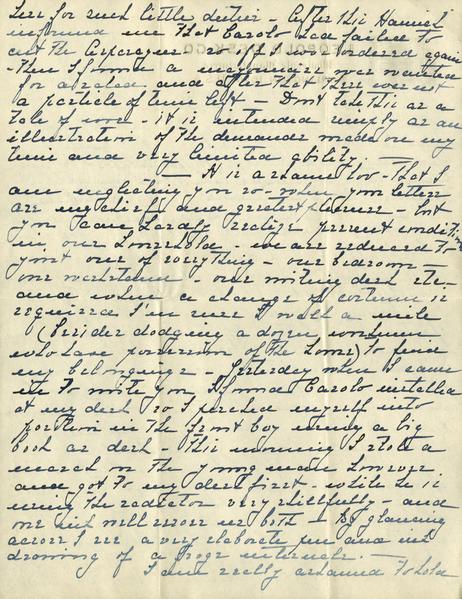 for such little duties - After this Hannah
informed me that Carolo had failed to
cut the Asparagus - so off I was ordered again
- Then I found a mayonnaise was wanted
for a salad, and after that there was not
a particle of time left - Don't take this as a
tale of woe - it is intended simply as an
illustration of the demands made on my
time and very limited ability. -
- It is a shame too - that I
am neglecting you so - when your letters
are my chief and greatest pleasure - but
you can hardly realize present conditions
in our household - we are reduced to
just one of everything - one bedroom -
one washstand - one writing desk etc -
and when a change of costume is
required I'm sure I walk a mile
(besides dodging a dozen workmen
who have possession of the house) to find
my belongings - Yesterday when I came
in to write you I found Carolo installed
at my desk so I perched myself into
position in the front bay using a big
book as desk - This morning I stole a
march on the young man however
and got to my desk first - while he is
using the radiator very skillfully - and
one ink well serves us both - By glancing
across I see a very elaborate pen and ink
drawing of a
I am really ashamed to hold